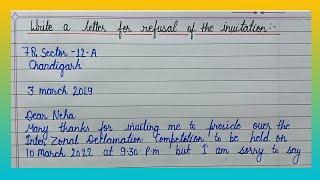 Write a letter for refusal of the invitation:-
78, Sector -12-A
Chandigarh
3 march 2019
Dear Neha
Many thanks for inviting me to preside over the
Inter Zonal Declamation Competation to be held on
10 March 2022 at 9:30 P.m. but I am sorry to say